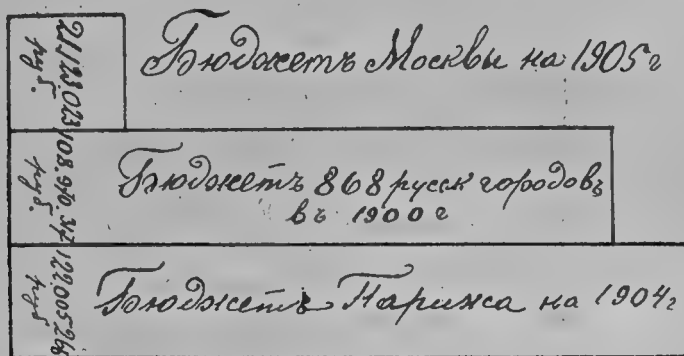 21.123.023
руб.
Бюджетъ Москвы на 1905 г
108.976.347
руб.
Бюджетъ 868 русск городовъ
въ 1900 г
122.005.26
руб
Бюджетъ Парижа на 1904 г